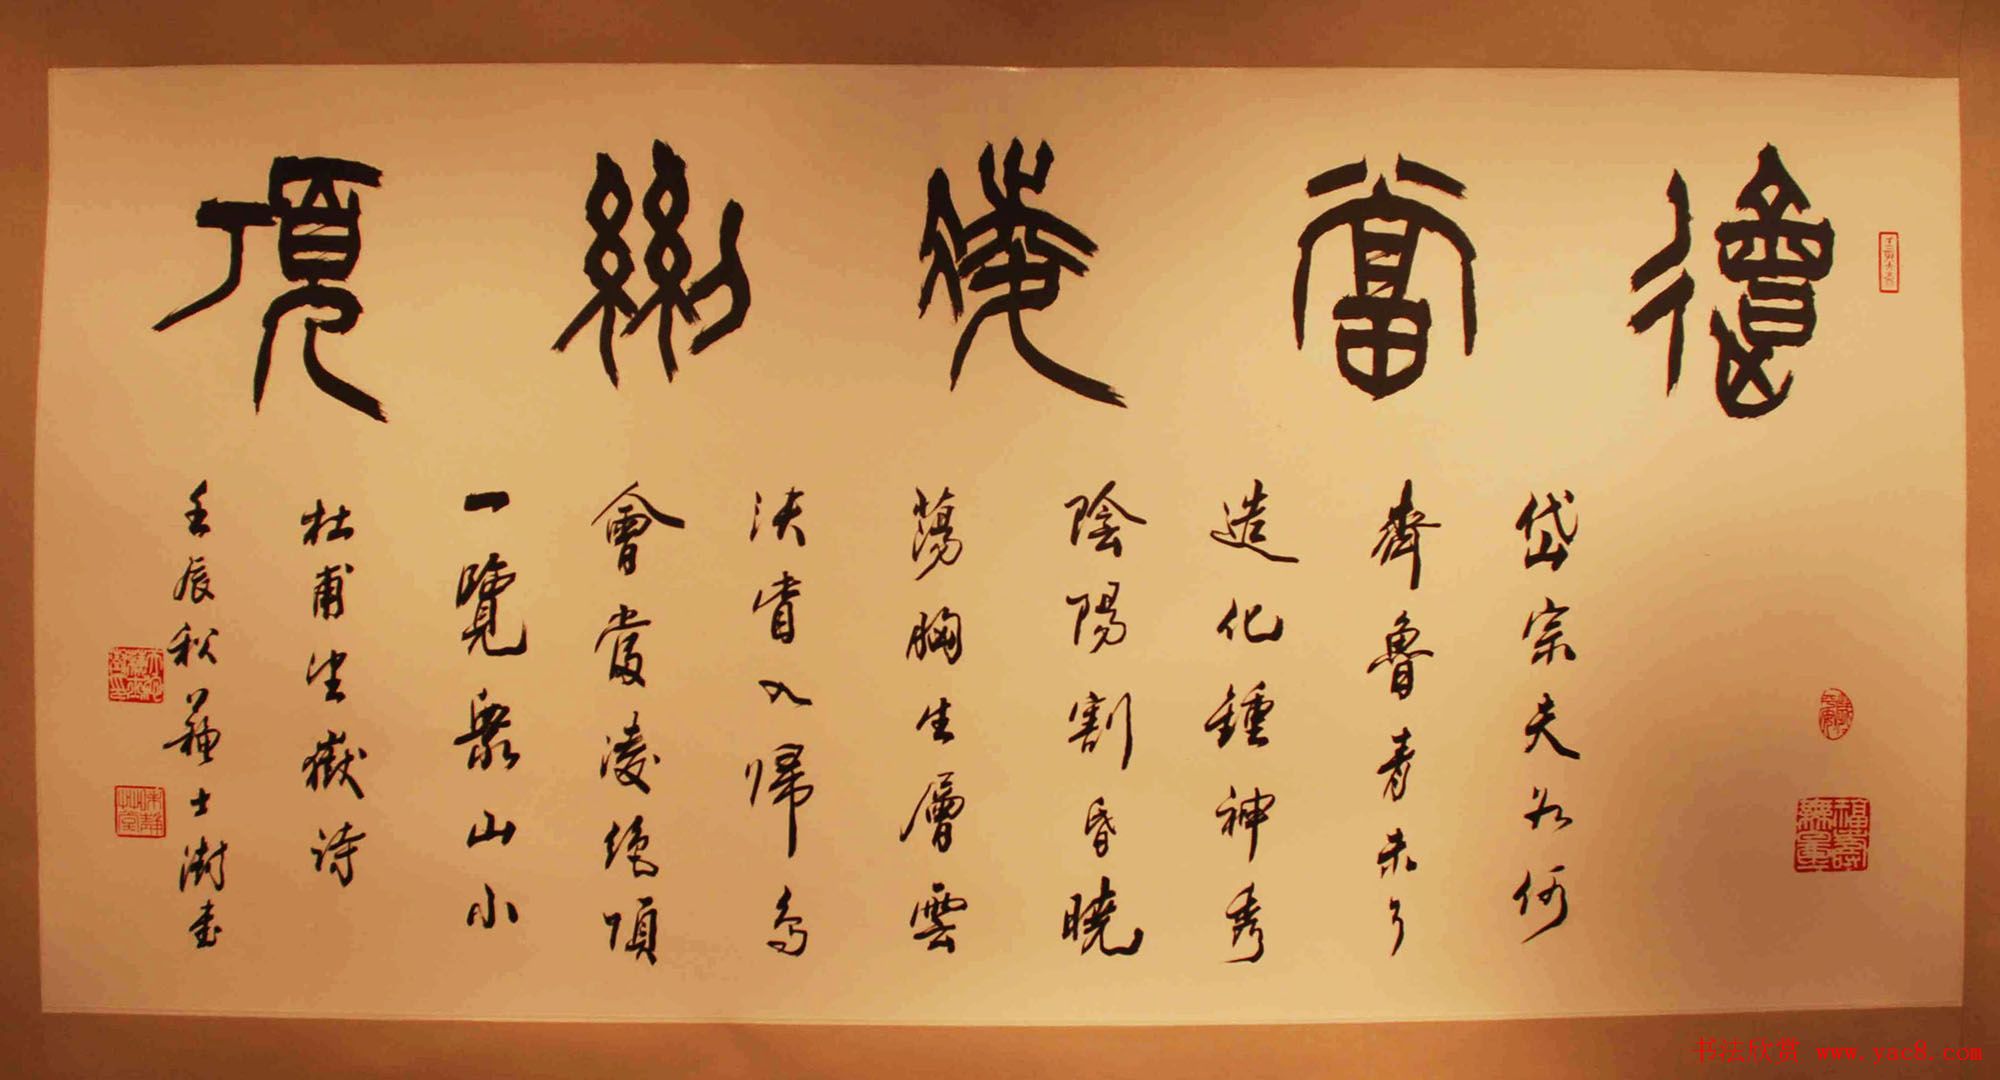 會當凌絕頂
岱宗夫如何
齊魯青未了
造化鍾神秀
陰陽割昏曉
蕩胸生層雲
決眥入歸鳥
會當凌絕頂
一覽眾山小
杜甫望嶽詩
壬辰秋蘇士澍書
福壽無量
书法欣赏 www.yac8.com